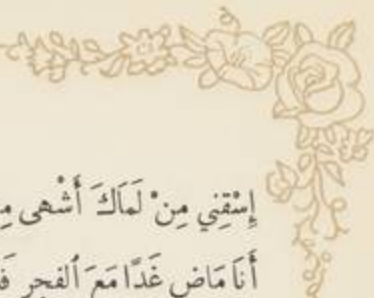 إِسْقِنِي مِنْ لَمَاكَ أَشْهَى
أَنَا مَاضٍ غَدًا مَعَ ٱلفجرِ